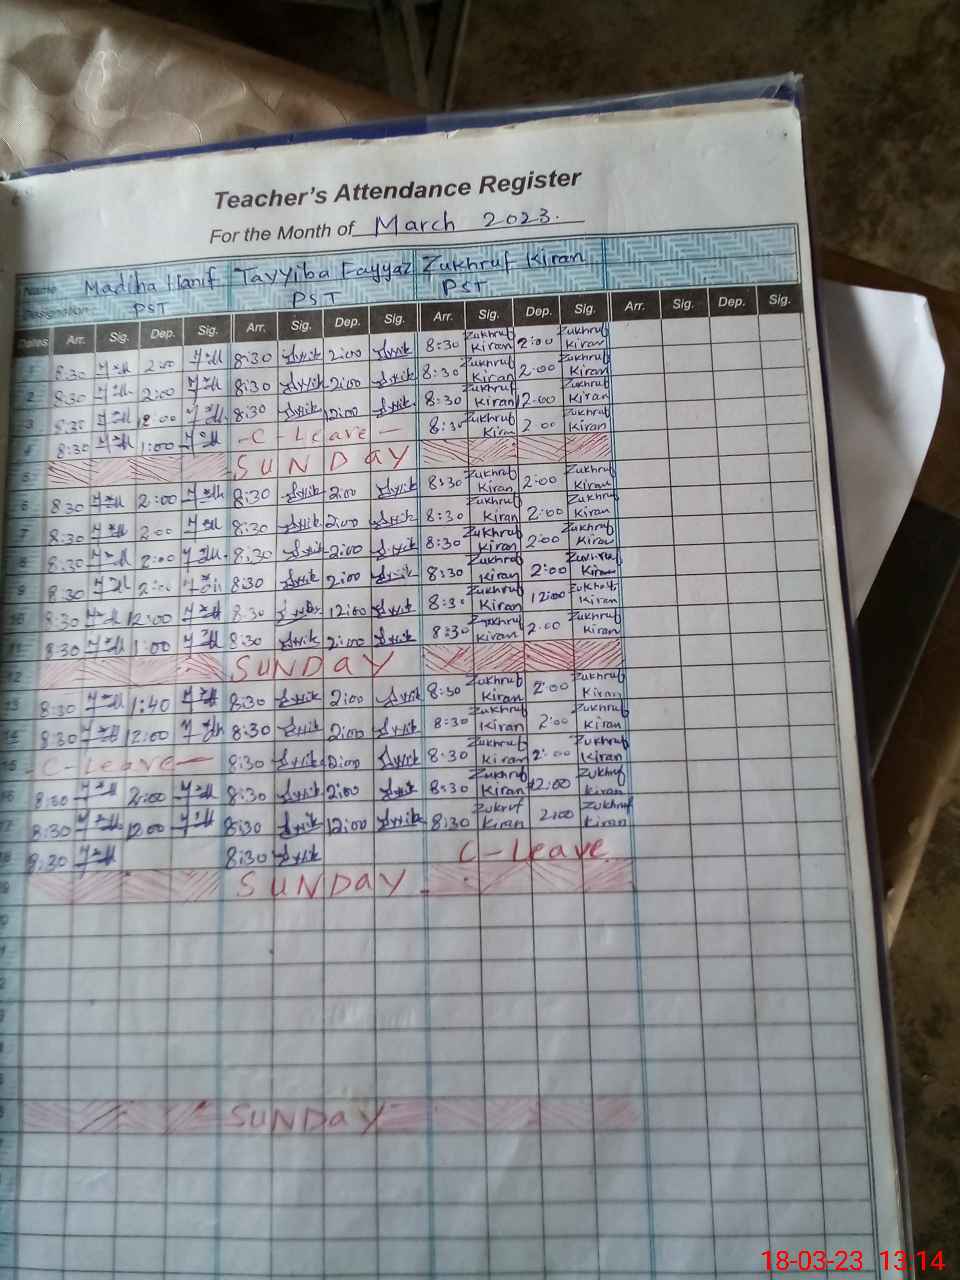 Teacher's Attendance Register
For the Month of March 2023.
Name Madiha Hanif Tayyiba Fayyaz Zukhruf Kiran
Designation PST PST PST
Dates Arr. Sig. Dep. Sig. Arr. Sig. Dep. Sig. Arr. Sig. Dep. Sig. Arr. Sig. Dep. Sig.
1 8:30 2:00 8:30 2:00 8:30 Zukhruf Kiran 2:00 Zukhruf Kiran
2 8:30 2:00 8:30 2:00 8:30 Zukhruf Kiran 2:00 Zukhruf Kiran
3 8:30 2:00 8:30 12:00 8:30 Zukhruf Kiran 12:00 Zukhruf Kiran
4 8:30 1:00 - C - Leave - 8:30 Zukhruf Kiran 2:00 Zukhruf Kiran
5 SUNDAY
6 8:30 2:00 8:30 2:00 8:30 Zukhruf Kiran 2:00 Zukhruf Kiran
7 8:30 2:00 8:30 2:00 8:30 Zukhruf Kiran 2:00 Zukhruf Kiran
8 8:30 2:00 8:30 2:00 8:30 Zukhruf Kiran 2:00 Zukhruf Kiran
9 8:30 2:00 8:30 2:00 8:30 Zukhruf Kiran 2:00 Zukhruf Kiran
10 8:30 12:00 8:30 12:00 8:30 Zukhruf Kiran 12:00 Zukhruf Kiran
11 8:30 1:00 8:30 2:00 8:30 Zukhruf Kiran 2:00 Zukhruf Kiran
12 SUNDAY
13 8:30 1:40 8:30 2:00 8:30 Zukhruf Kiran 2:00 Zukhruf Kiran
14 8:30 12:00 8:30 2:00 8:30 Zukhruf Kiran 2:00 Zukhruf Kiran
15 - C - Leave - 8:30 2:00 8:30 Zukhruf Kiran 2:00 Zukhruf Kiran
16 8:30 2:00 8:30 2:00 8:30 Zukhruf Kiran 2:00 Zukhruf Kiran
17 8:30 12:00 8:30 12:00 8:30 Zukruf Kiran 2:00 Zukhruf Kiran
18 8:30 8:30 C - Leave
19 SUNDAY
SUNDAY
18-03-23 13:14